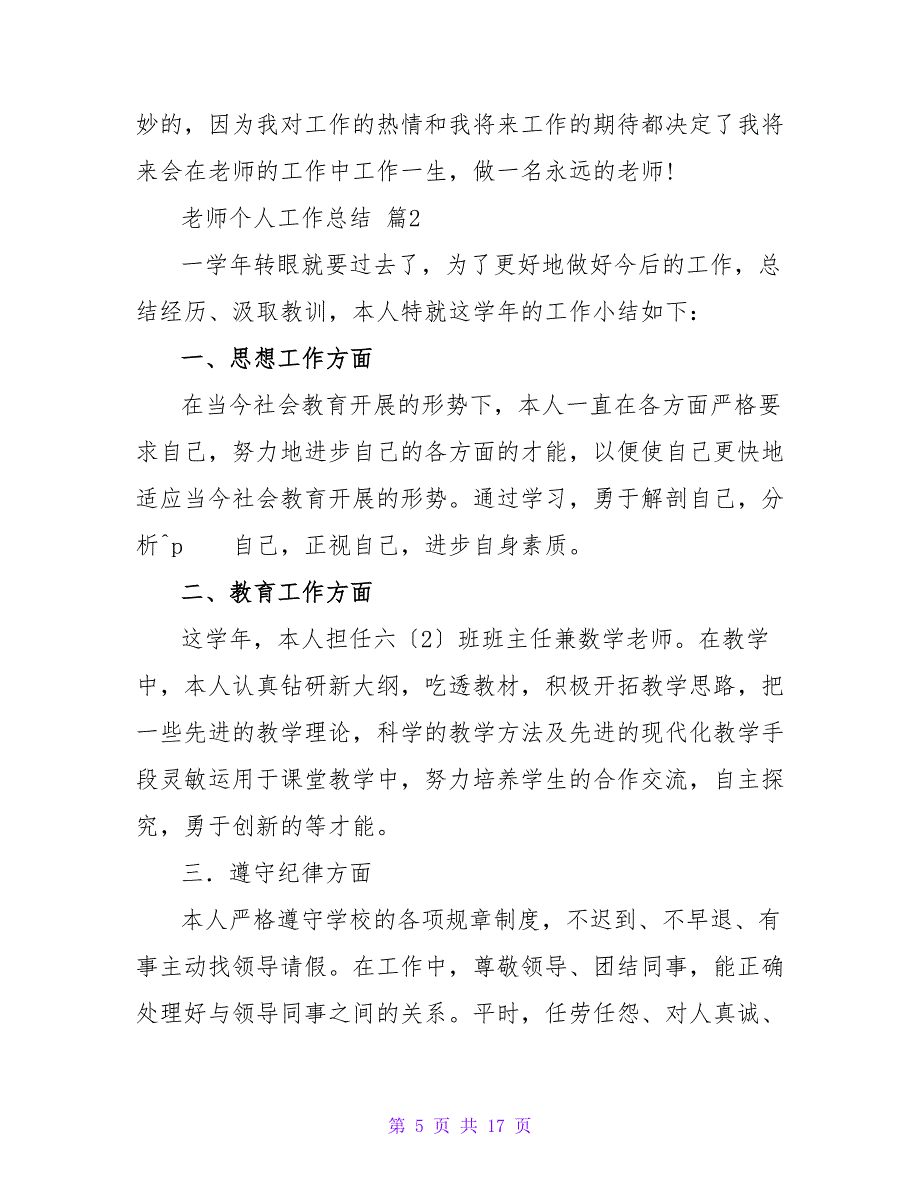 妙的，因为我对工作的热情和我将来工作的期待都决定了我将
来会在老师的工作中工作一生，做一名永远的老师!
老师个人工作总结 篇2
一学年转眼就要过去了，为了更好地做好今后的工作，总
结经历、汲取教训，本人特就这学年的工作小结如下：
一、思想工作方面
在当今社会教育开展的形势下，本人一直在各方面严格要
求自己，努力地进步自己的各方面的才能，以便使自己更快地
适应当今社会教育开展的形势。通过学习，勇于解剖自己，分
析^p 自己，正视自己，进步自身素质。
二、教育工作方面
这学年，本人担任六〔2〕班班主任兼数学老师。在教学
中，本人认真钻研新大纲，吃透教材，积极开拓教学思路，把
一些先进的教学理论，科学的教学方法及先进的现代化教学手
段灵敏运用于课堂教学中，努力培养学生的合作交流，自主探
究，勇于创新的等才能。
三．遵守纪律方面
本人严格遵守学校的各项规章制度，不迟到、不早退、有
事主动找领导请假。在工作中，尊敬领导、团结同事，能正确
处理好与领导同事之间的关系。平时，任劳任怨、对人真诚、
第 5 页 共 17 页